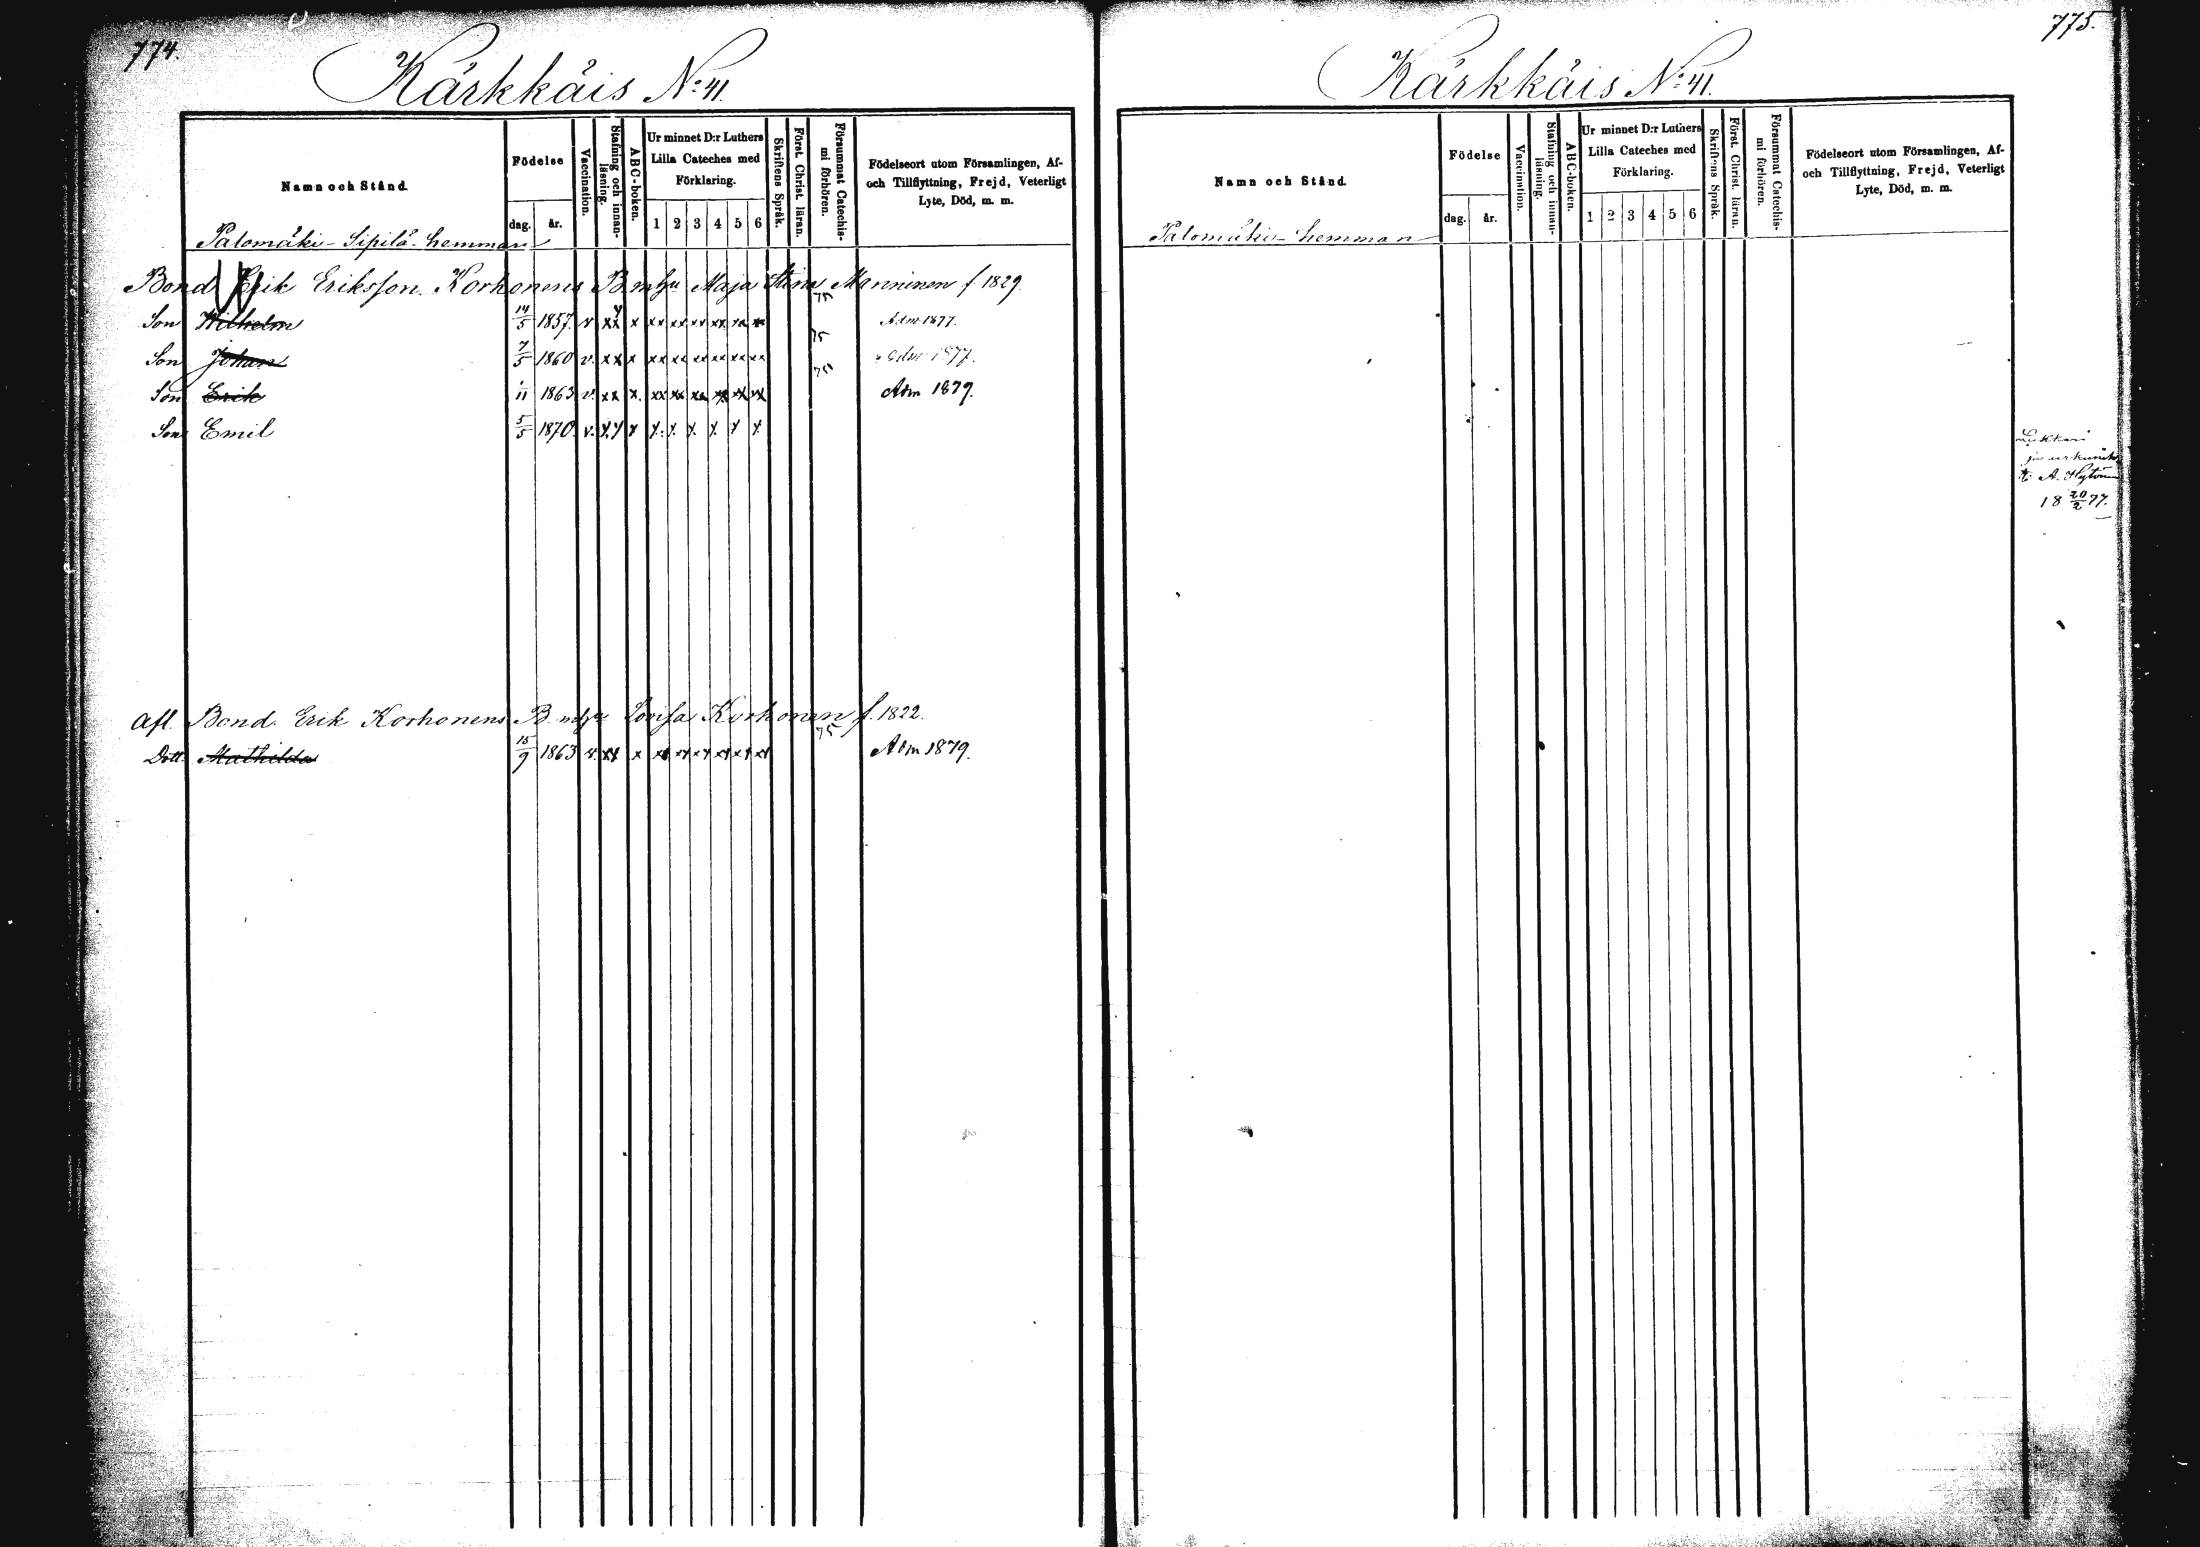 774.
Kärkkäis No 41.
Namn och Stånd.
Födelse
dag. år.
Vaccination.
Stafning och innan-
läsning.
ABC-boken.
Ur minnet D:r Luthers
Lilla Cateches med
Förklaring.
1 2 3 4 5 6
Skriftens Språk.
Först. Christ. läran.
Försummat Catechis-
mi förhören.
Födelseort utom Församlingen, Af-
och Tillflyttning, Frejd, Veterligt
Lyte, Död, m. m.
Palomäki-Sipilä-hemman
Bond Erik Eriksson Korhonens Maja Stina Manninen f 1829.
Son Wilhelm 14/5 1857. v xx x xx xx xx xx xx xx 75 Adm 1877.
Son Johan 7/5 1860 v. xx x xx xx xx xx xx xx 75 Adm 1877.
Son Erik /11 1863 v. xx x. xx xx xx xx xx xx 75 Adm 1879.
Son Emil 5/5 1870. v. xx x x x x x x x
Afl. Bond. Erik Korhonens Lovisa Korhonen f. 1822.
Dott. Mathilda 15/9 1863 v. xx x xx xx xx xx xx xx 75 Adm 1879.
775.
Kärkkäis No 41.
Namn och Stånd.
Födelse
dag. år.
Vaccination.
Stafning och innan-
läsning.
ABC-boken.
Ur minnet D:r Luthers
Lilla Cateches med
Förklaring.
1 2 3 4 5 6
Skriftens Språk.
Först. Christ. läran.
Försummat Catechis-
mi förhören.
Födelseort utom Församlingen, Af-
och Tillflyttning, Frejd, Veterligt
Lyte, Död, m. m.
Palomäki-hemman
Lukkari
A. Hytönen
18 20/2 77.